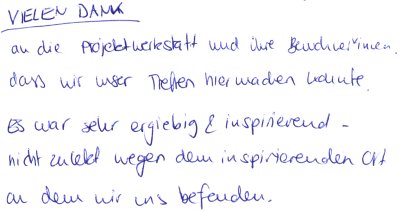 VIELEN DANK
an die Projektwerkstatt und ihre Bewohner*innen,
dass wir unser Treffen hier machen konnte.
Es war sehr ergiebig & inspirierend -
nicht zuletzt wegen dem inspirierenden Ort
an dem wir uns befenden.